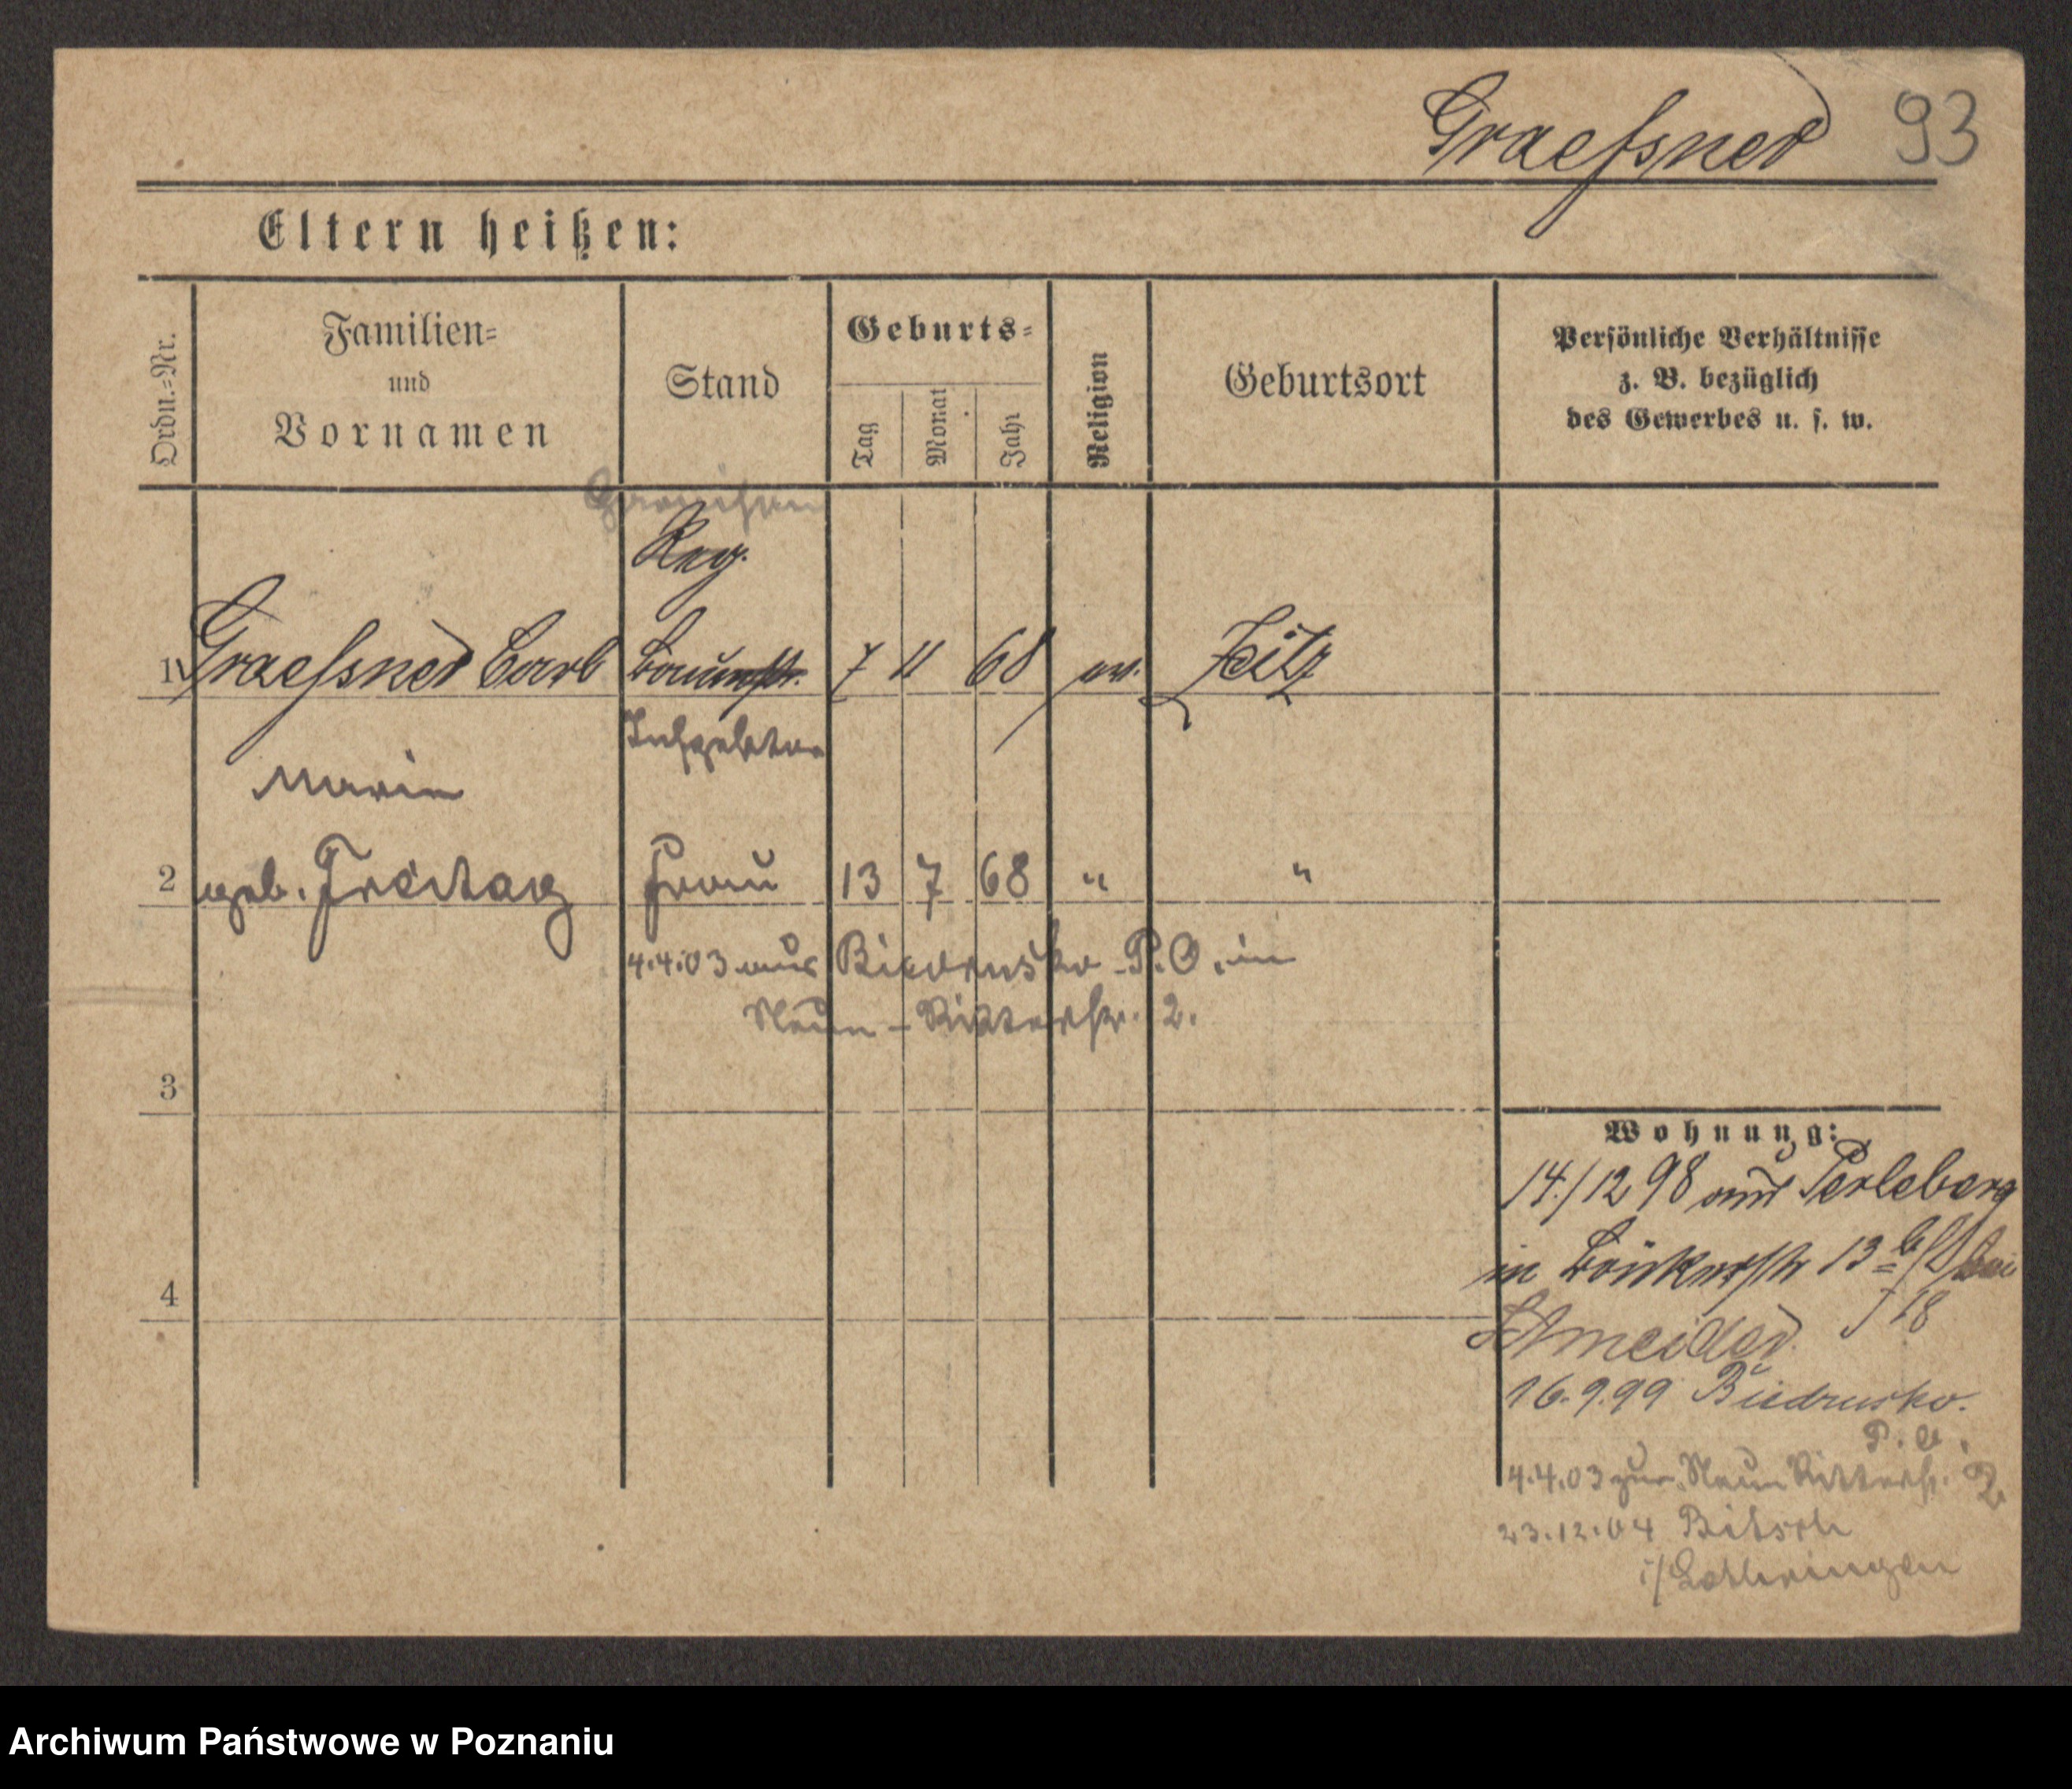 Graeſsner 93
Eltern heißen:
Ordn.=Nr.
Familien=
und
Vornamen
Stand
Geburts=
Tag
Monat
Jahr
Religion
Geburtsort
Persönliche Verhältnisse
z. B. bezüglich
des Gewerbes u. s. w.
Garnison
Reg.
1 Graeſsner Carl Baumstr. 7 11 68 ev. Zeitz
Inspektor
Marie
2 geb. Freitag Frau 13 7 68 " "
4.4.03 aus Biedrusko P.O. in
Neue - Ritterstr. 2.
3
Wohnung:
14/12 98 aus Perleberg
in Bäckerstr 13 b/ bei
4
Schneider. 18
16.9.99 Biedrusko.
P. O.
4.4.03 zur. Neue Ritterstr. 2
23.12.04 Bitsch
i/Lothringen
Archiwum Państwowe w Poznaniu